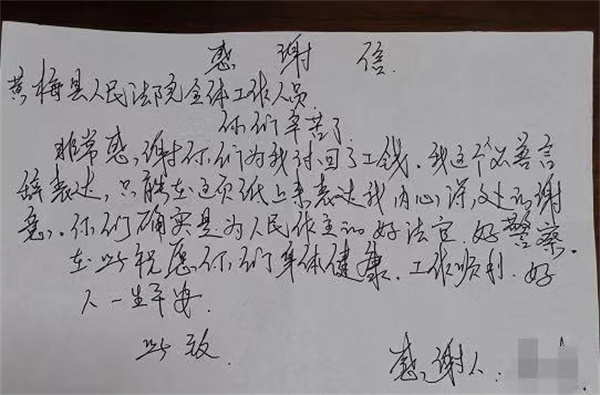 感谢信
黄梅县人民法院全体工作人员
你们辛苦了
非常感谢你们为我讨回了工钱.我这个不善言
辞表达,只能在这页纸上来表达我内心深处的谢
意,.你们确实是为人民作主的好法官.好警察.
在此祝愿你们身体健康.工作顺利.好
人一生平安.
此致.
感谢人: